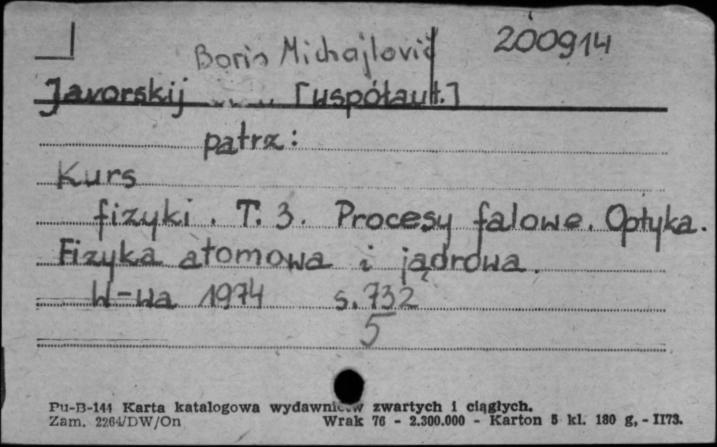 Boris Michajlovič 200914
Javorskij [współaut.]
patrz:
Kurs
fizyki. T. 3. Procesy falowe. Optyka.
Fizyka atomowa i jądrowa.
W-wa 1974 s. 732
5
Pu-B-144 Karta katalogowa wydawnictw zwartych i ciągłych.
Zam. 2264/DW/On Wrak 76 - 2.300.000 - Karton 5 kl. 180 g, - II73.